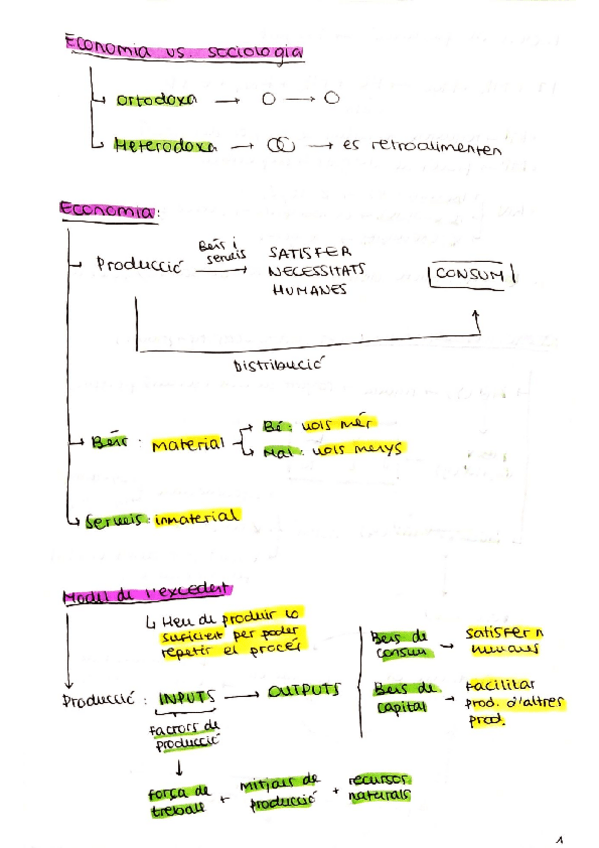 Economia vs. sociologia
Ortodoxa → O → O
Heterodoxa → → es retroalimenten
Economia:
Producció
Béns i
serveis
SATISFER
NECESSITATS
HUMANES
CONSUM
Distribució
Béns: material
Bé: vols més
Mal: vols menys
Serveis: inmaterial
Model de l'excedent
Heu de produir lo
suficient per poder
repetir el procés
Producció: INPUTS → OUTPUTS
Factors de
producció
força de
treball
+
mitjans de
producció
+
recursos
naturals
Bens de
consum
→ satisfer n
humanes
Bens de
capital
→ Facilitar
prod. d'altres
prod.
1